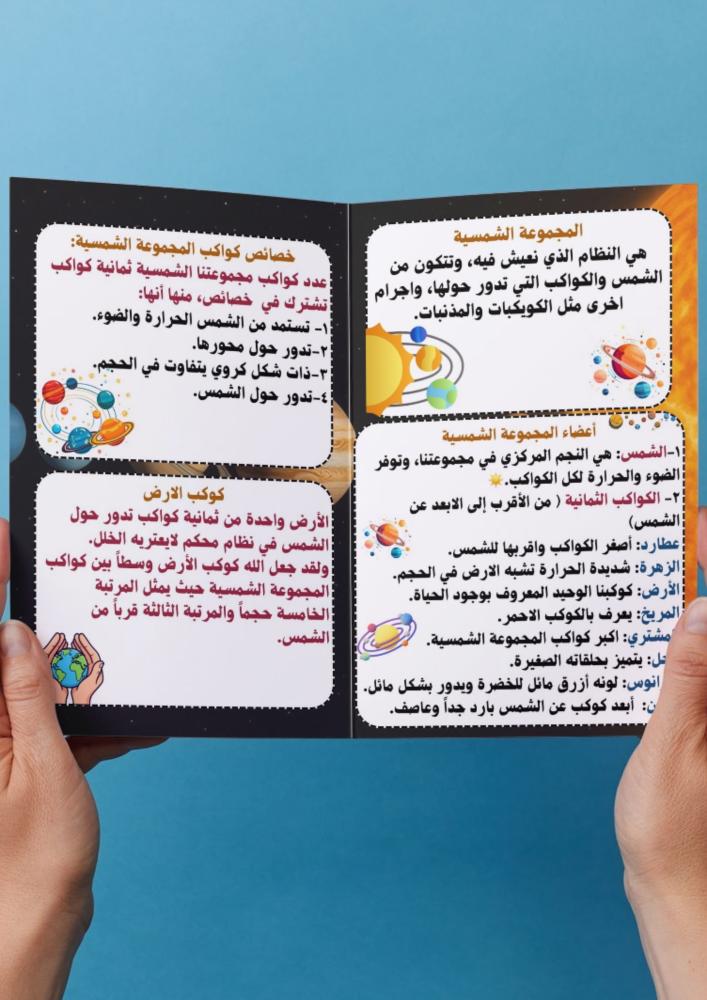 المجموعة الشمسية
هي النظام الذي نعيش فيه، وتتكون من
الشمس والكواكب التي تدور حولها، واجرام
اخرى مثل الكويكبات والمذنبات.
أعضاء المجموعة الشمسية
١-الشمس: هي النجم المركزي في مجموعتنا، وتوفر
الضوء والحرارة لكل الكواكب.
٢- الكواكب الثمانية ( من الأقرب إلى الابعد عن
الشمس)
عطارد: أصغر الكواكب واقربها للشمس.
الزهرة: شديدة الحرارة تشبه الارض في الحجم.
الأرض: كوكبنا الوحيد المعروف بوجود الحياة.
المريخ: يعرف بالكوكب الاحمر.
مشتري: اكبر كواكب المجموعة الشمسية.
حل: يتميز بحلقاته الصغيرة.
رانوس: لونه أزرق مائل للخضرة ويدور بشكل مائل.
ن: أبعد كوكب عن الشمس بارد جداً وعاصف.
خصائص كواكب المجموعة الشمسية:
عدد كواكب مجموعتنا الشمسية ثمانية كواكب
تشترك في خصائص، منها أنها:
١- تستمد من الشمس الحرارة والضوء.
٢-تدور حول محورها.
٣-ذات شكل كروي يتفاوت في الحجم.
٤-تدور حول الشمس.
كوكب الارض
الأرض واحدة من ثمانية كواكب تدور حول
الشمس في نظام محكم لايعتريه الخلل.
ولقد جعل الله كوكب الأرض وسطاً بين كواكب
المجموعة الشمسية حيث يمثل المرتبة
الخامسة حجماً والمرتبة الثالثة قرباً من
الشمس.